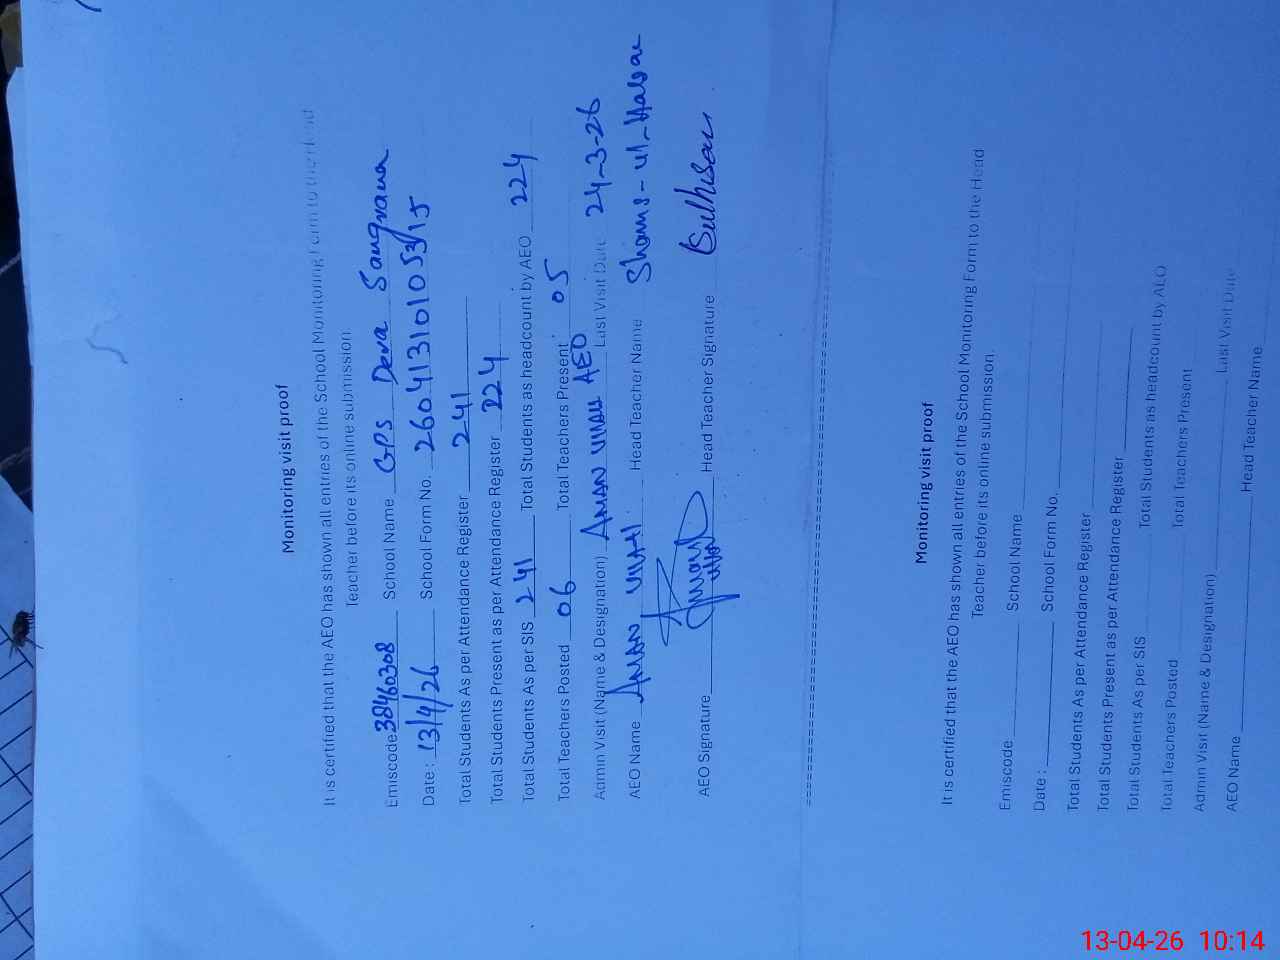 Monitoring visit proof
It is certified that the AEO has shown all entries of the School Monitoring Form to the Head
Teacher before its online submission.
Emiscode 38460308 School Name GPS Dera Sangrana
Date : 13/4/26 School Form No. 260413101053/15
Total Students As per Attendance Register 241
Total Students Present as per Attendance Register 224
Total Students As per SIS 241 Total Students as headcount by AEO 224
Total Teachers Posted 06 Total Teachers Present 05
Admin Visit (Name & Designation) AMAN Ullah AEO Last Visit Date 24-3-26
AEO Name AMAN Ullah Head Teacher Name Shams-ul-Hasan
AEO Signature Head Teacher Signature
Monitoring visit proof
It is certified that the AEO has shown all entries of the School Monitoring Form to the Head
Teacher before its online submission.
Emiscode School Name
Date : School Form No.
Total Students As per Attendance Register
Total Students Present as per Attendance Register
Total Students As per SIS Total Students as headcount by AEO
Total Teachers Posted Total Teachers Present
Admin Visit (Name & Designation) Last Visit Date
AEO Name Head Teacher Name
13-04-26 10:14